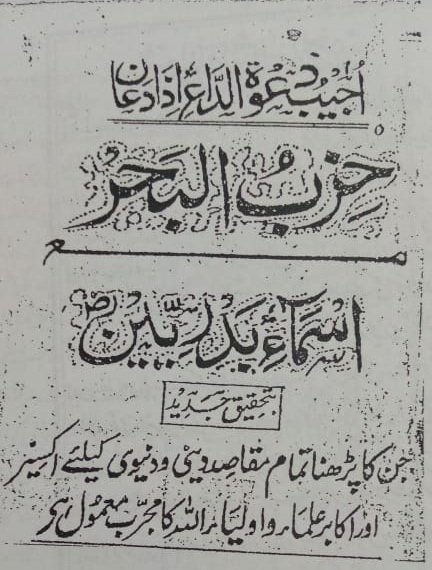 اُجِیْبُ دَعْوَۃَ الدَّاعِ اِذَا دَعَانِ
حِزْبُ الْبَحْر
مع
اَسْمَآءِ بَدْرِیِّیْن
بتحقیق جدید
جن کا پڑھنا تمام مقاصد دینی و دنیوی کیلئے اکسیر
اور اکابر علماء و اولیاء اللہ کا مجرّب معمول ہے